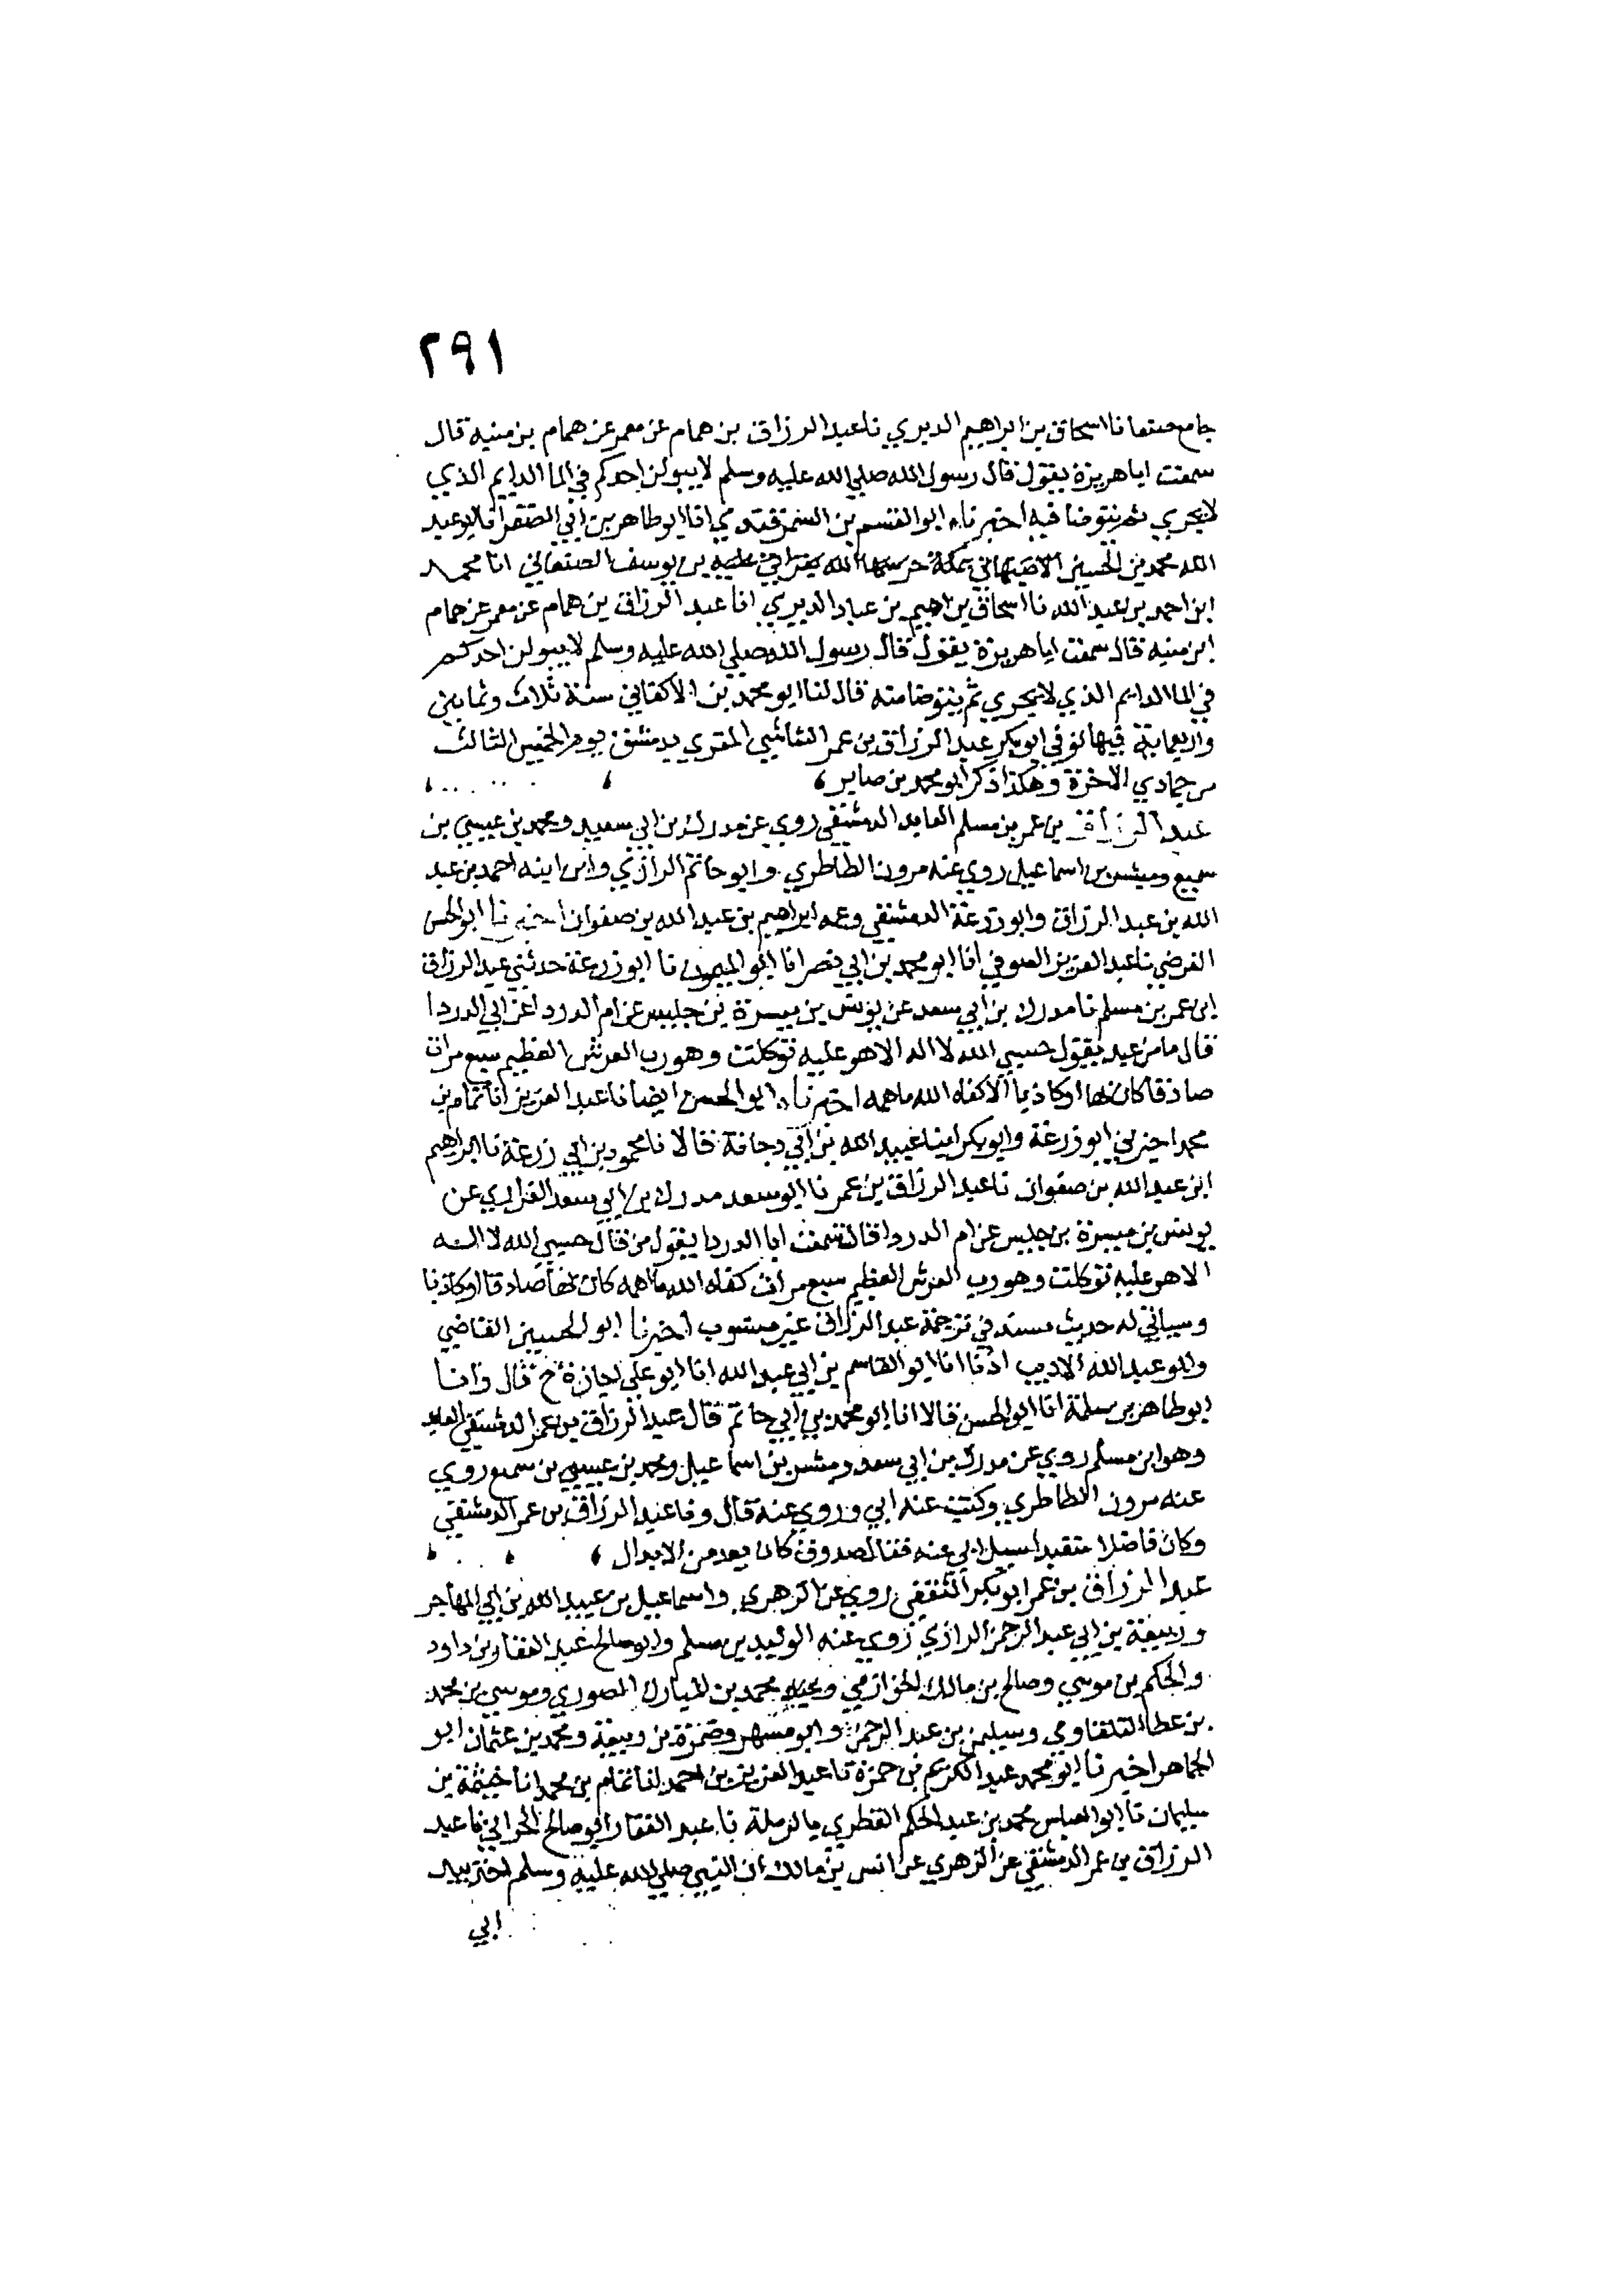 ٢٩١
جامع صنعا نا اسحاق بن ابراهيم الدبري نا عبد الرزاق بن همام عن معمر عن همام بن منبه قال
سمعت ابا هريرة يقول قال رسول الله صلي الله عليه وسلم لا يبولن احدكم في الما الدايم الذي
لا يجري ثم يتوضا فيه اخبرناه ابو القسم بن السمرقندي انا ابو طاهر بن ابي الصقر انا ابو عبد
الله محمد بن الحسين الاصبهاني بمكة حرسها الله بن يوسف الصنعاني انا محمد
ابن احمد بن عبد الله نا اسحاق بن اهيم بن عباد الدبري انا عبد الرزاق بن همام عن معمر عن همام
ابن منبه قال سمعت ابا هريرة يقول قال رسول الله صلي الله عليه وسلم لا يبولن احدكم
في الما الدايم الذي لا يجري ثم يتوضا منه قال لنا ابو محمد بن الاكفاني سنة ثلاث وثمانين
واربعماية فيها توفي ابو بكر عبد الرزاق بن عمر الشاشي المقري بدمشق يوم الخميس الثالث
من جمادي الاخرة وهكذا ذكر ابو محمد بن صابر
عبد الرزاق بن عمر بن مسلم العابد الدمشقي روي عن مدرك بن ابي سعيد ومحمد بن عيسي بن
سميع ومبشر بن اسماعيل روي عنه مرون الطاطري وابو حاتم الرازي وابن ابنه احمد بن عبد
الله بن عبد الرزاق وابو زرعة الدمشقي وعمه ابراهيم بن عبد الله بن صفوان اخبرنا ابو الحسن
الفرضي نا عبد العزيز الصوفي انا ابو محمد بن ابي نصر انا ابو الميمون نا ابو زرعة حدثني عبد الرزاق
ابن عمر بن مسلم نا مدرك بن ابي سعد عن يونس بن ميسرة بن حلبس عن ام الدردا عن ابي الدردا
قال ما من عبد يقول حسبي الله لا اله الا هو عليه توكلت وهو رب العرش العظيم سبع مرات
صادقا كان بها او كاذبا الا كفاه الله ما همه اخبرناه ابو الحسن ايضا نا عبد العزيز انا تمام بن
محمد اخبرني ابو زرعة وابو بكر ابنا عبيد الله بن ابي دجانة قالا نا محمود بن ابي زرعة نا ابراهيم
ابن عبد الله بن صفوان نا عبد الرزاق بن عمر نا ابو سعد مدرك بن ابي سعد الفزاري عن
يونس بن ميسرة بن حلبس عن ام الدردا قالت سمعت ابا الدردا يقول من قال حسبي الله لا اله
الا هو عليه توكلت وهو رب العرش العظيم سبع مرات كفاه الله ما همه كان بها صادقا او كاذبا
وسياتي له حديث مسند في ترجمة عبد الرزاق غير منسوب اخبرنا ابو الحسين القاضي
وابو عبد الله الاديب اذنا انا ابو القاسم بن ابي عبد الله انا ابو علي اجازة ح قال وانا
ابو طاهر بن سلمة انا ابو الحسن قالا انا ابو محمد بن ابي حاتم قال عبد الرزاق بن عمر الدمشقي العابد
وهو ابن مسلم روي عن مدرك بن ابي سعد ومبشر بن اسماعيل ومحمد بن عيسي بن سميع روي
عنه مرون الطاطري وكتب عنه ابي وروي عنه قال ونا عبد الرزاق بن عمر الدمشقي
وكان فاضلا متعبدا سيل ابي عنه فقال صدوق كان يعد من الابدال
عبد الرزاق بن عمر ابو بكر الثقفي روي عن الزهري واسماعيل بن عبيد الله بن ابي المهاجر
وربيعة بن ابي عبد الرحمن الرازي روي عنه الوليد بن مسلم وابو صالح عبد الغفار بن داود
والحكم بن موسي وصالح بن مالك الخوارزمي ومحمد بن المبارك الصوري وموسي بن محمد
بن عطا البلقاوي وسليمن بن عبد الرحمن وابو مسهر وضمرة بن ربيعة ومحمد بن عثمان ابو
الجماهر اخبرنا ابو محمد عبد الكريم بن حمزة نا عبد العزيز بن احمد انا تمام بن محمد انا خيثمة بن
سليمان نا ابو العباس محمد بن عبد الحكم القطري بالرملة نا عبد الغفار ابو صالح الحراني نا عبد
الرزاق بن عمر الدمشقي عن الزهري عن انس بن مالك ان النبي صلي الله عليه وسلم اخذ بيد
ابي